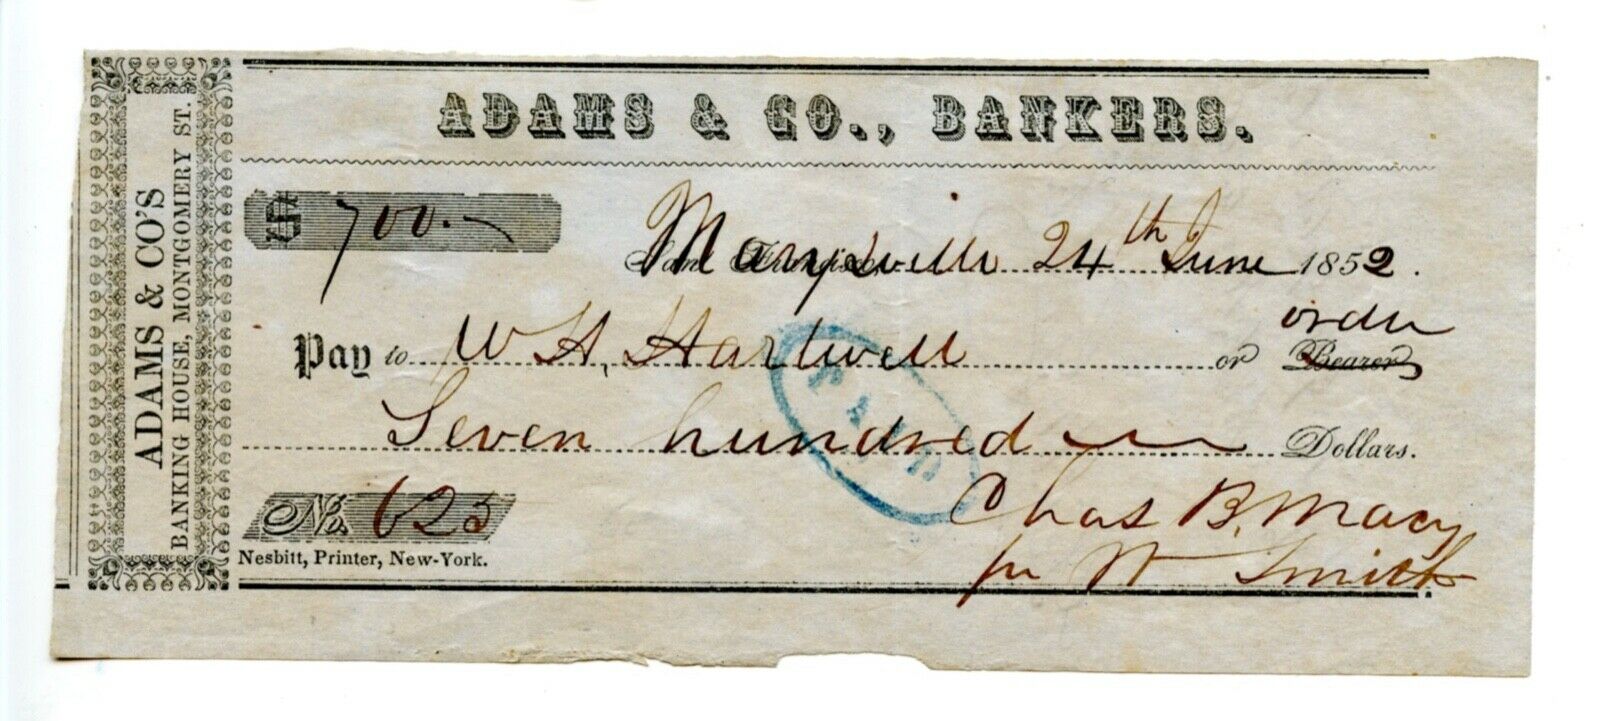 ADAMS & CO'S
BANKING HOUSE, MONTGOMERY ST.
ADAMS & CO., BANKERS.
$ 700.-
San Francisco Marysville 24th June 1852.
order
Pay to W H, Hartwell or Bearer
Seven hundred Dollars.
PAID
No. 625
Chas B. Macy
pr W Smith
Nesbitt, Printer, New-York.